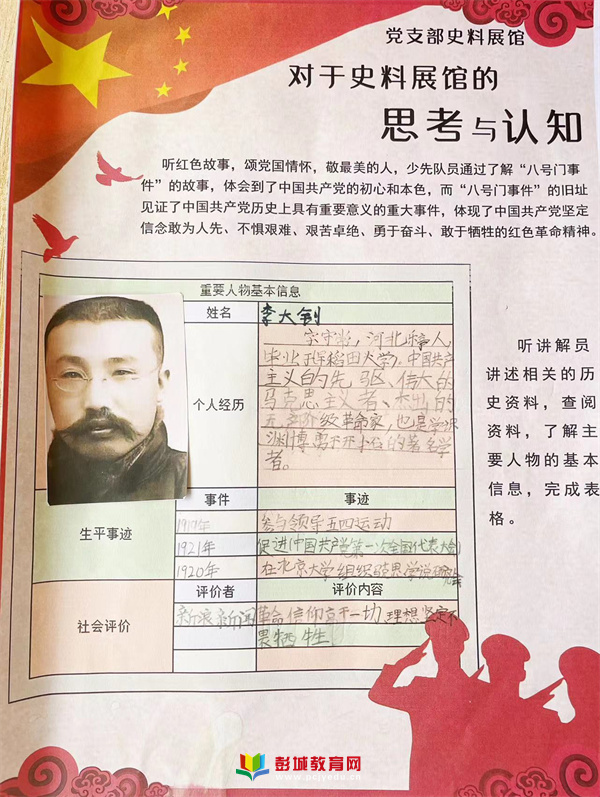 党支部史料展馆
对于史料展馆的
思考与认知
听红色故事，颂党国情怀，敬最美的人，少先队员通过了解“八号门事
件”的故事，体会到了中国共产党的初心和本色，而“八号门事件”的旧址
见证了中国共产党历史上具有重要意义的重大事件，体现了中国共产党坚定
信念敢为人先、不惧艰难、艰苦卓绝、勇于奋斗、敢于牺牲的红色革命精神。
重要人物基本信息
姓名 李大钊
个人经历
字守常，河北 人，
毕业 早稻田大学，中国共产
主义的先驱、伟大的
马克思主义者、杰出的
无产阶级革命家，也是学识
渊博 的著名学
者。
听讲解员
讲述相关的历
史资料，查阅
资料，了解主
要人物的基本
信息，完成表
格。
生平事迹
事件 事迹
1919年 参与领导五四运动
1921年 促进《中国共产党第一次全国代表大会》
1920年 在北京大学组织 思学说研究会
社会评价
评价者 评价内容
新浪新闻 革命信仰高于一切，理想坚定不
畏牺牲
彭城教育网
www.pcjyedu.cn